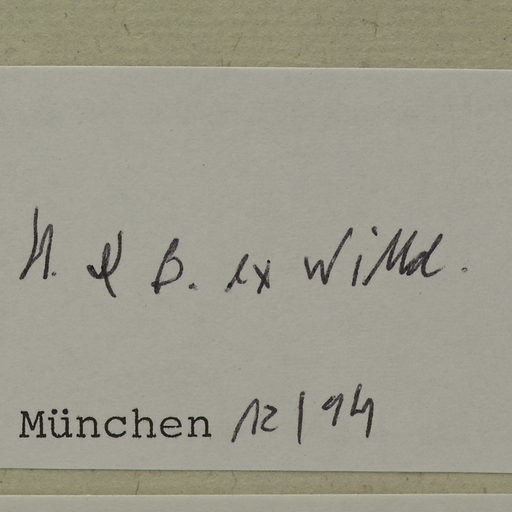 H. & B. ex Willd.
München 12/94